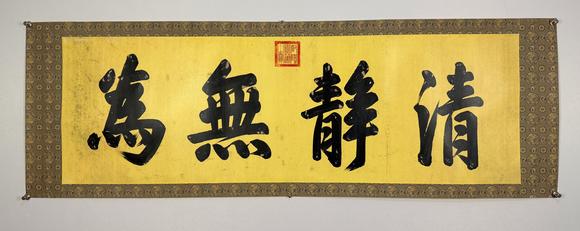 清靜無為